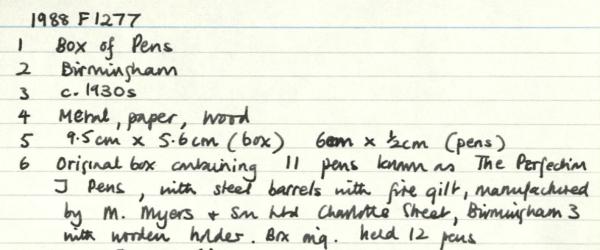 1988 F1277
1 Box of Pens
2 Birmingham
3 c. 1930s
4 Metal, paper, wood
5 9.5cm x 5.6cm (box) 6cm x ½cm (pens)
6 Original box containing 11 pens known as The Perfection
J Pens, with steel barrels with fire gilt, manufactured
by M. Myers + Son Ltd Charlotte Street, Birmingham 3
with wooden holder. Box orig. held 12 pens